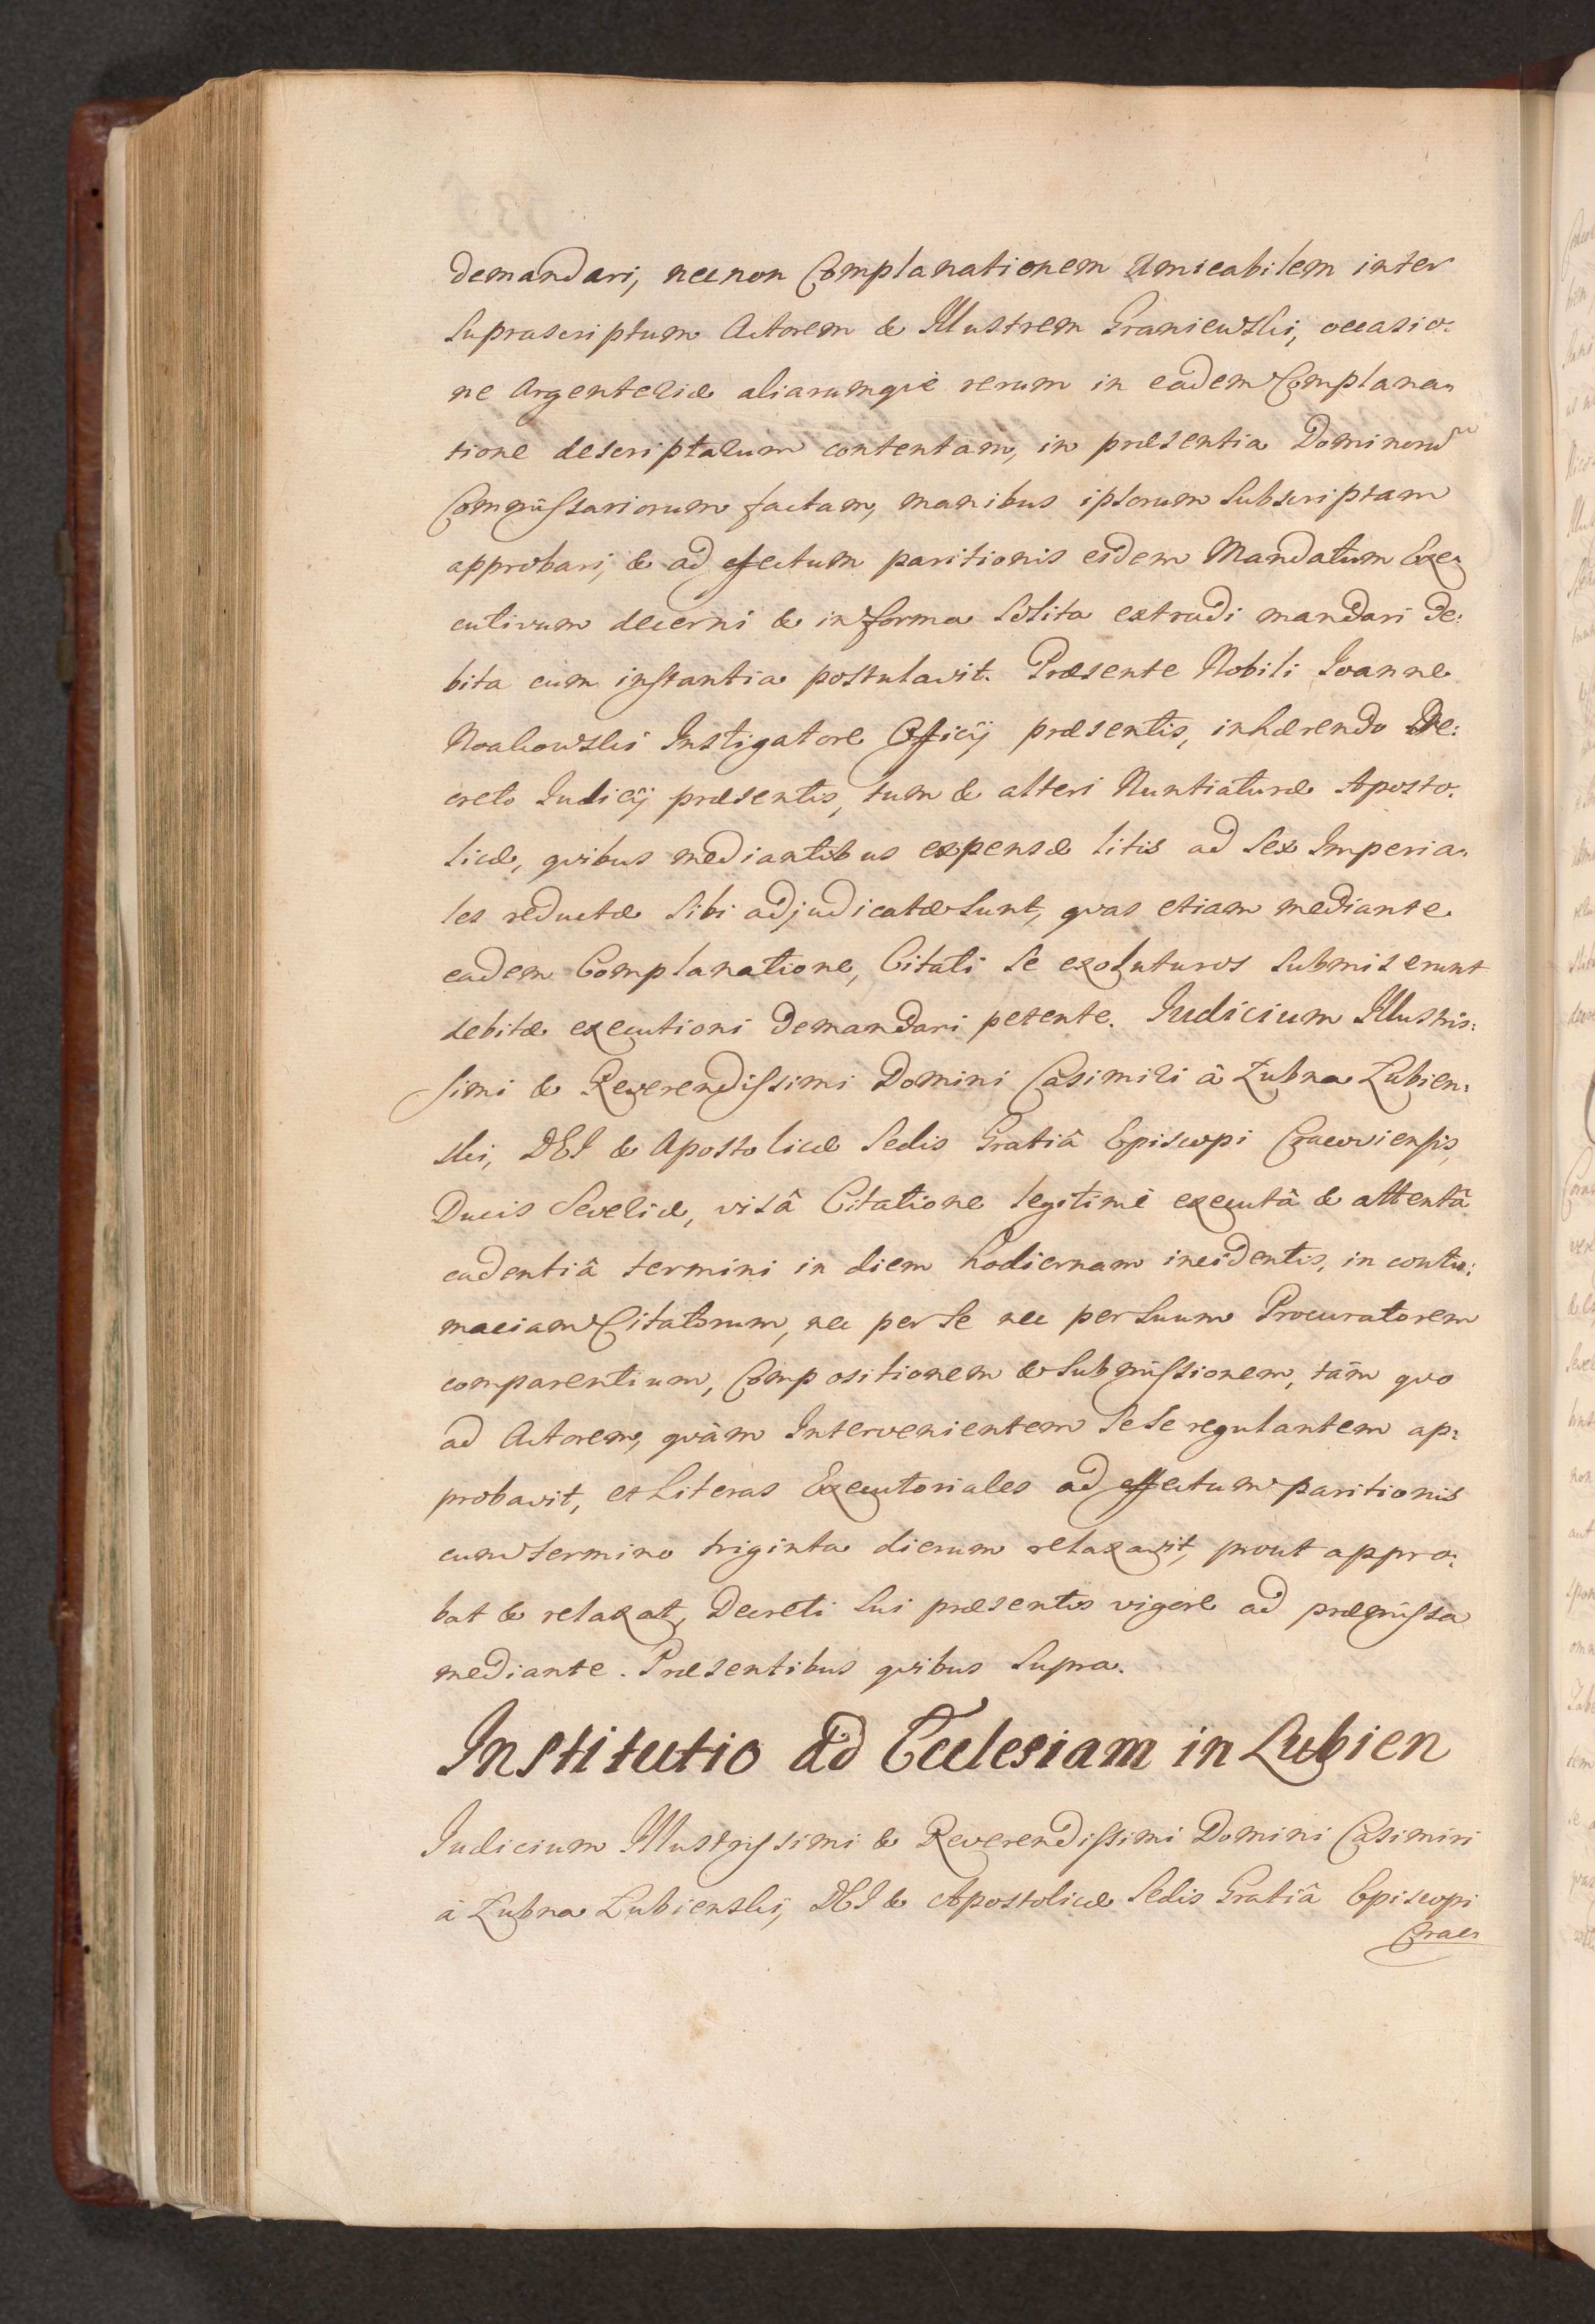 demandari, necnon Complanationem Amicabilem inter
suprascriptum Actorem & Illustrem Graniewski, occasio:
ne Argenteriæ aliarumqúe rerum in eadem Complana:
tione descriptarum contentam, in præsentia Dominorũ
Commissariorum factam, manibus ipsorum subscriptam
approbari, & ad effectum paritionis eidem Mandatum Exe:
cutivum decerni & in forma solita extradi mandari de:
bita cum instantia postulavit. Præsente Nobili Ioanne
Noakowski Instigatore Officÿ præsentis, inhærendo De:
creto Iudicÿ præsentis, tum & alteri Nuntiaturæ Aposto:
licæ, quibus mediantibus expensæ litis ad sex Imperia:
les reductæ sibi adjudicatæ sunt, quas etiam mediante
eadem Complanatione, Citati se exoluturos submiserunt
debitæ executioni demandari petente. Iudicium Illustris:
simi & Reverendissimi Domini Casimiri â Łubna Łubien:
ski, DEI & Apostolicæ Sedis Gratiâ Episcopi Cracoviensis,
Ducis Severiæ, visâ Citatione legitimè executâ & attentâ
cadentiâ termini in diem hodiernam incidentis, in contu:
maciam Citatorum, nec per se nec per suum Procuratorem
comparentium, Compositionem & submissionem, tàm quo
ad Actorem, quàm Intervenientem sese regulantem ap:
probavit, et Literas Executoriales ad effectum paritionis
cum termino triginta dierum relaxavit, prout appro:
bat & relaxat, Decreti sui præsentis vigore ad præmissa
mediante. Præsentibus quibus supra.
Institutio ad Ecclesiam in Lubien
Iudicium Illustrissimi & Reverendissimi Domini Casimiri
à Łubna Łubienski, DEI & Apostolicæ Sedis Gratiâ Episcopi
Crac: